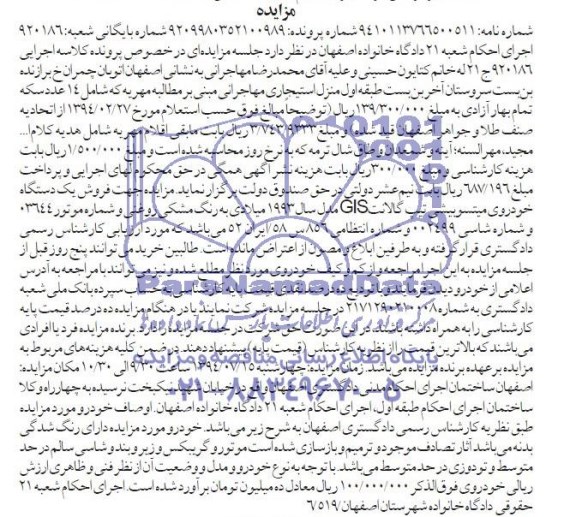 مزایده
شماره نامه: ۹۴۱۰۱۱۳۷۶۶۵۰۰۵۱۱ شماره پرونده: ۹۲۰۹۹۸۰۳۵۲۱۰۰۹۸۹ شماره بایگانی شعبه: ۹۲۰۱۸۶
اجرای احکام شعبه ۲۱ دادگاه خانواده اصفهان در نظر دارد جلسه مزایده‌ای در خصوص پرونده کلاسه اجرایی
۹۲۰۱۸۶ ج ۲۱ له خانم کتایون حسینی و علیه آقای محمدرضا مهاجرانی به نشانی اصفهان اتوبان چمران خ برازنده
بن‌بست سروستان آخر بن‌بست طبقه اول منزل استیجاری مهاجرانی مبنی بر مطالبه مهریه که شامل ۱۴ عدد سکه
تمام بهار آزادی به مبلغ ۱۳۹/۳۰۰/۰۰۰ ریال (توضیحا مبالغ فوق حسب استعلام مورخ ۱۳۹۴/۰۲/۲۷ از اتحادیه
صنف طلا و جواهر اصفهان قید شده) و مبلغ ۳/۷۴۳/۹۲۳۳ ریال بابت مابقی اقلام مهریه شامل هدیه کلام‌ا...
مجید، مهرالسنه، آینه و شمعدان و طاق شال ترمه که به نرخ روز محاسبه شده است و مبلغ ۱/۵۰۰/۰۰۰ ریال بابت
هزینه کارشناسی و مبلغ ۳۰۰/۰۰۰ ریال بابت هزینه نشر آگهی همگی در حق محکوم‌لها اجرایی و پرداخت
مبلغ ۶۸۷/۱۹۶ ریال بابت نیم‌عشر دولتی در حق صندوق دولت برگزار نماید. مزایده جهت فروش یک دستگاه
خودروی میتسوبیشی تیپ گالانت GIS مدل سال ۱۹۹۳ میلادی به رنگ مشکی روغنی و شماره موتور ۰۳۶۴۴
و شماره شاسی ۰۰۲۴۹۹ و شماره انتظامی ۸۵۶ س ۵۸/ ایران ۵۲ می‌باشد که مورد ارزیابی کارشناس رسمی
دادگستری قرار گرفته و به طرفین ابلاغ و مصون از اعتراض مانده است. طالبین خرید می‌توانند پنج روز قبل از
جلسه مزایده به این اجرا مراجعه و از کم و کیف خودروی موردنظر مطلع شده و نیز می‌توانند با مراجعه به آدرس
اعلامی از خودرو دیدن
دادگستری به شماره ۲۱۷۱۲۹۰۲۱۰۰۸ در جلسه مزایده شرکت نمایند یا در هنگام مزایده ده درصد قیمت پایه
کارشناسی را به همراه داشته باشند. برنده مزایده فرد یا افرادی
می‌باشند که بالاترین قیمت را از نظریه کارشناسی (قیمت پایه) پیشنهاد دهند. در ضمن کلیه هزینه‌های مربوط به
مزایده بر عهده برنده مزایده می‌باشد. زمان مزایده: چهارشنبه ۱۳۹۴/۰۷/۱۵ ساعت ۹/۳۰ الی ۱۰/۳۰ مکان مزایده:
اصفهان ساختمان اجرای احکام مدنی دادگستری واقع در خیابان شهید نیکبخت نرسیده به چهارراه وکلا
ساختمان اجرای احکام طبقه اول، اجرای احکام شعبه ۲۱ دادگاه خانواده اصفهان. اوصاف خودرو مورد مزایده
طبق نظریه کارشناس رسمی دادگستری اصفهان به شرح زیر می‌باشد. خودرو مورد مزایده دارای رنگ شدگی
بدنه می‌باشد آثار تصادف موجود و ترمیم و بازسازی شده است موتور و گیربکس و زیر و بند و شاسی سالم در حد
متوسط و تودوزی در حد متوسط می‌باشد. با توجه به نوع خودرو و مدل و وضعیت آن از نظر فنی و ظاهری ارزش
ریالی خودروی فوق‌الذکر ۱۰۰/۰۰۰/۰۰۰ ریال معادل ده میلیون تومان برآورد شده است. اجرای احکام شعبه ۲۱
حقوقی دادگاه خانواده شهرستان اصفهان ۶/۵۱۹/
ParsNamadData
پایگاه اطلاع رسانی مناقصه و مزایده
۰۲۱-۸۸۳۴۹۶۷۰-۵